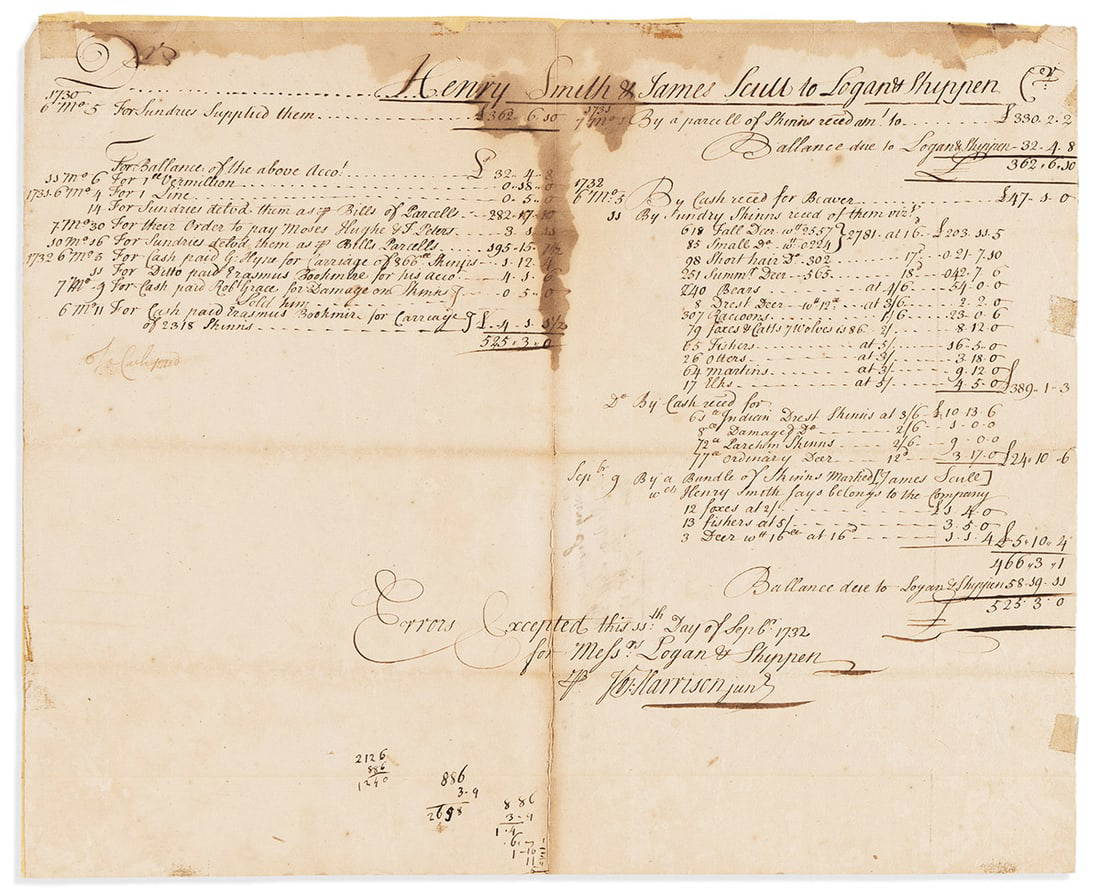 Drs
Henry Smith & James Scull to Logan & Shippen Cr.
1730
6 Mo. 5 For Sundries Supplied them £362..6..10
For Ballance of the above Acco.t £32..4..8
11 Mo 6 For 1lb Vermillion 0..18..0
1731..6 Mo 4 For 1 Line 0..5..0
14 For Sundries delvd them as P Bills of Parcells 282..17..10
7 Mo 30 For their Order to pay Moses Hughe & J. Peters 3..1..11
10 Mo 16 For Sundries delvd them as P Bills Parcells 195..15..1 1/2
1732 6 Mo 5 For Cash paid G. Hyne for Carriage of 866 Skinns 1..12..4
11 For Ditto paid Erasmus Bookmire for his Acco.t 4..1..6
7 Mo 9 For Cash paid Rob.t Grace for Damage on Skinns 0..5..0
Sold him
6 Mo 11 For Cash paid Erasmus Bookmire for Carriage
of 2318 Skinns £4..1..1/2
525..3..0
1731
7 Mo By a parcell of Skinns reced am.t to £330..2..2
Ballance due to Logan & Shippen 32..4..8
362..6..10
1732
6 Mo. 5 By Cash reced for Beaver £47..1..0
11 By Sundry Skinns reced of them viz.t
618 Fall Deer w.t 2557
85 Small Do w.t 0224 } 2781 at 16d £203..11..5
98 Short hair D.o 302 17d 021..7..10
251 Summ.r Deer 565 18d 042..7..0
240 Bears at 4/6 54..0..0
8 Drest Deer w.t 12 at 3/6 2..2..0
307 Racoons 1/6 23..0..6
79 foxes & Catts 7 Wolves is 86 2/ 8..12..0
65 Fishers at 5/ 16..5..0
26 Otters at 3/ 3..18..0
64 martins at 3/ 9..12..0
17 Elks at 5/ 4..5..0 £389..1..3
Do By Cash reced for
61 Indian Drest Skinns at 3/6 £10..13..6
8 Damaged Do 2/6 1..0..0
72 Parchm Skinns 2/6 9..0..0
77 ordinary Deer 12d 3..17..0 £24..10..6
Sepbr 9 By a Bundle of Skinns Marked [James Scull]
wch Henry Smith says belongs to the Company
12 foxes at 2/ £1..4..0
13 fishers at 5/ 3..5..0
3 Deer wtt 16 at 16d 1..1..4 £5..10..4
466..3..1
Ballance due to Logan & Shippen 58..19..11
£ 525..3..0
Errors Excepted this 11th Day of Sepbr 1732
for Messrs Logan & Shippen
P Harrison junr
2126
886
1240
886
3..9
2698
886
3..9
1..4